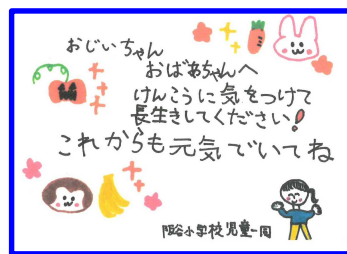 おじいちゃん
おばあちゃんへ
けんこうに気をつけて
長生きしてください!
これからも元気でいてね
阪谷小学校児童一同